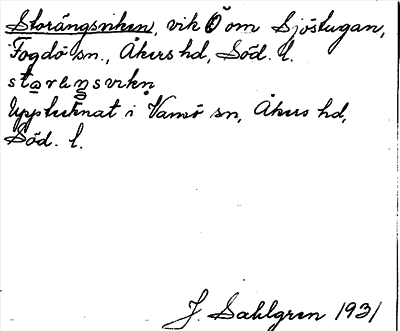 Storängsviken, vik Ö om Sjöstugan,
Fogdö sn., Åkers hd, Söd. l.
Uppteknat i Vansö sn, Åkers hd,
Söd. l.
J. Sahlgren 1931